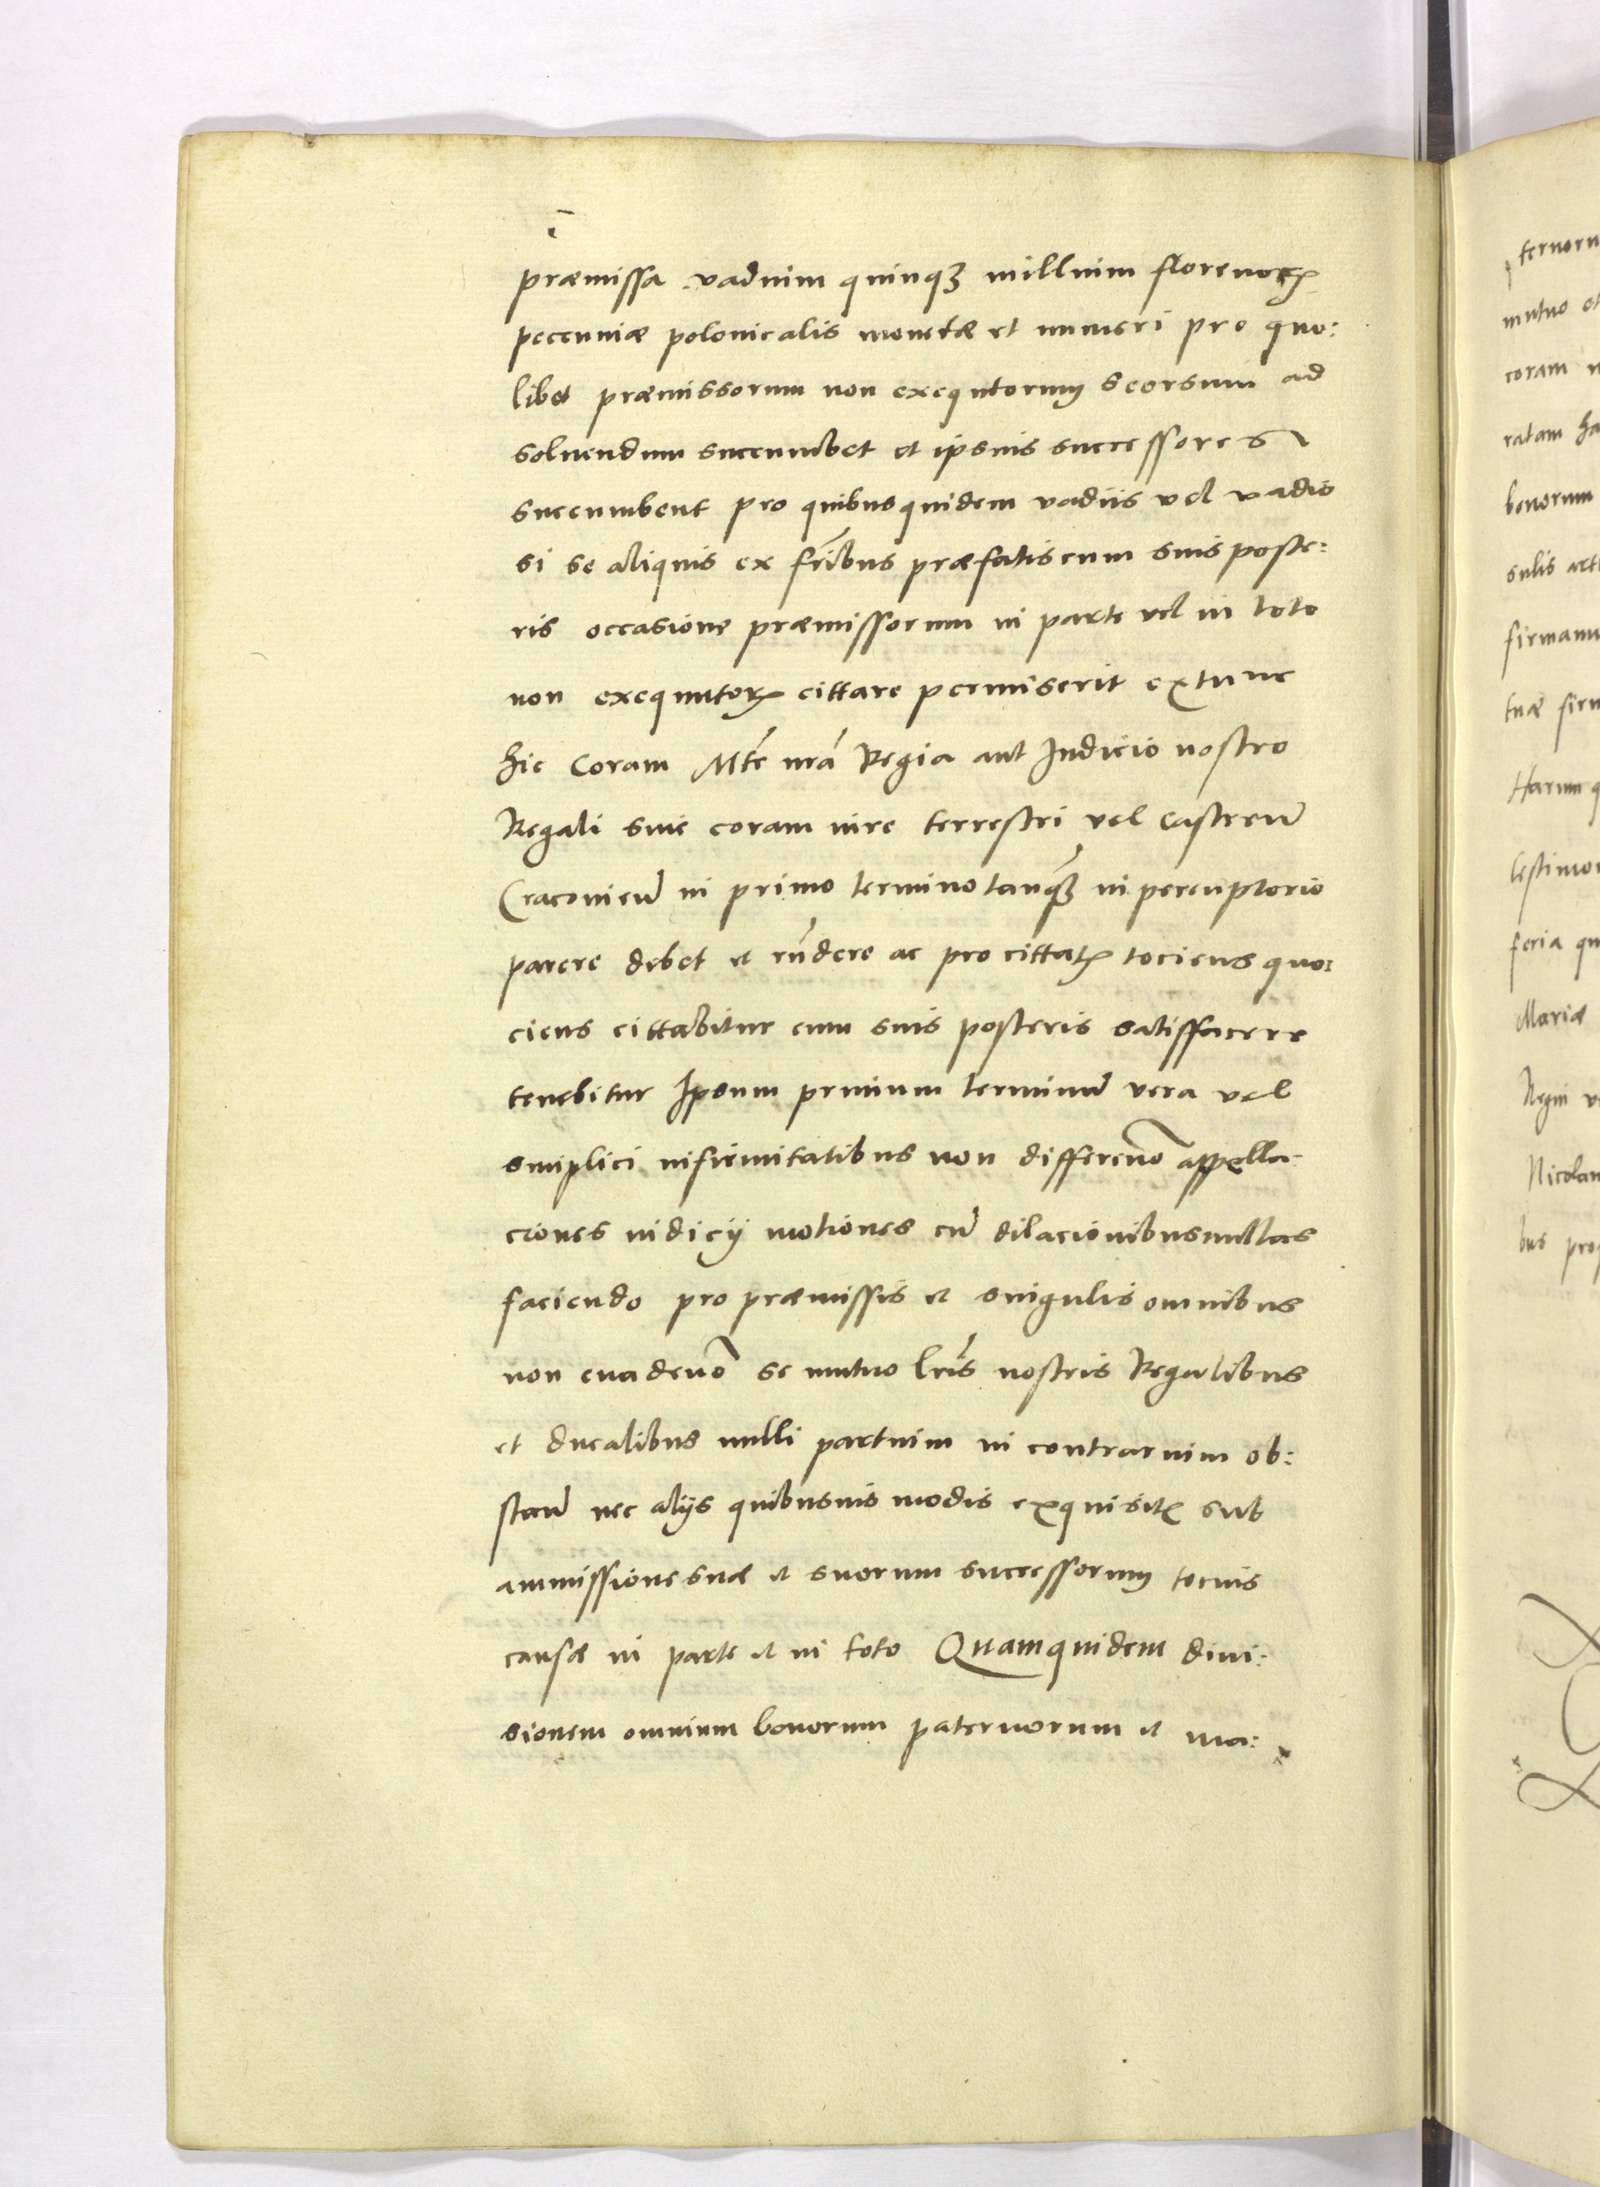 præmissa vadium quinqȝ millium florenorꝝ
peccuniæ polonicalis monetæ et numeri pro quo:
libet præmissorum non exequtorum seorsum ad
soluendum succumbet et ipsius successores
succumbent pro quibusquidem vadiis vel vadio
si se aliquis ex fribus præfatis cum suis poste:
ris occasione præmissorum in parte vel in toto
non exequutorꝝ cittare permiserit extunc
hic Coram Mte nra Regia aut Iudicio nostro
Regali siue coram iure terrestri vel castren
Cracouien in primo termino tanqȝ in peremptorio
parere debet et rndere ac pro cittatꝭ tociens quo:
ciens cittabitur cum suis posteris satisffacere
tenebitur Ipsum primum terminum vera vel
simplici infirmitatibus non differendo appella:
ciones iudicij motiones cum dilacionibus nullas
faciendo pro præmissis et singulis omnibus
non euadendo se mutuo lris nostris Regalibus
et ducalibus nulli partium in contrarium ob:
stan nec alijs quibusuis modis exquisitꝭ sub
ammissione suæ et suorum successorum tocius
causæ in parte et in toto Quamquidem diui:
sionem omnium bonorum paternorum et ma:
ternorum
mutuo et
coram
ratam
bonorum
firmam
tuæ
Harum
testimon
feria
Mariæ
Regni
Nicolau
bus